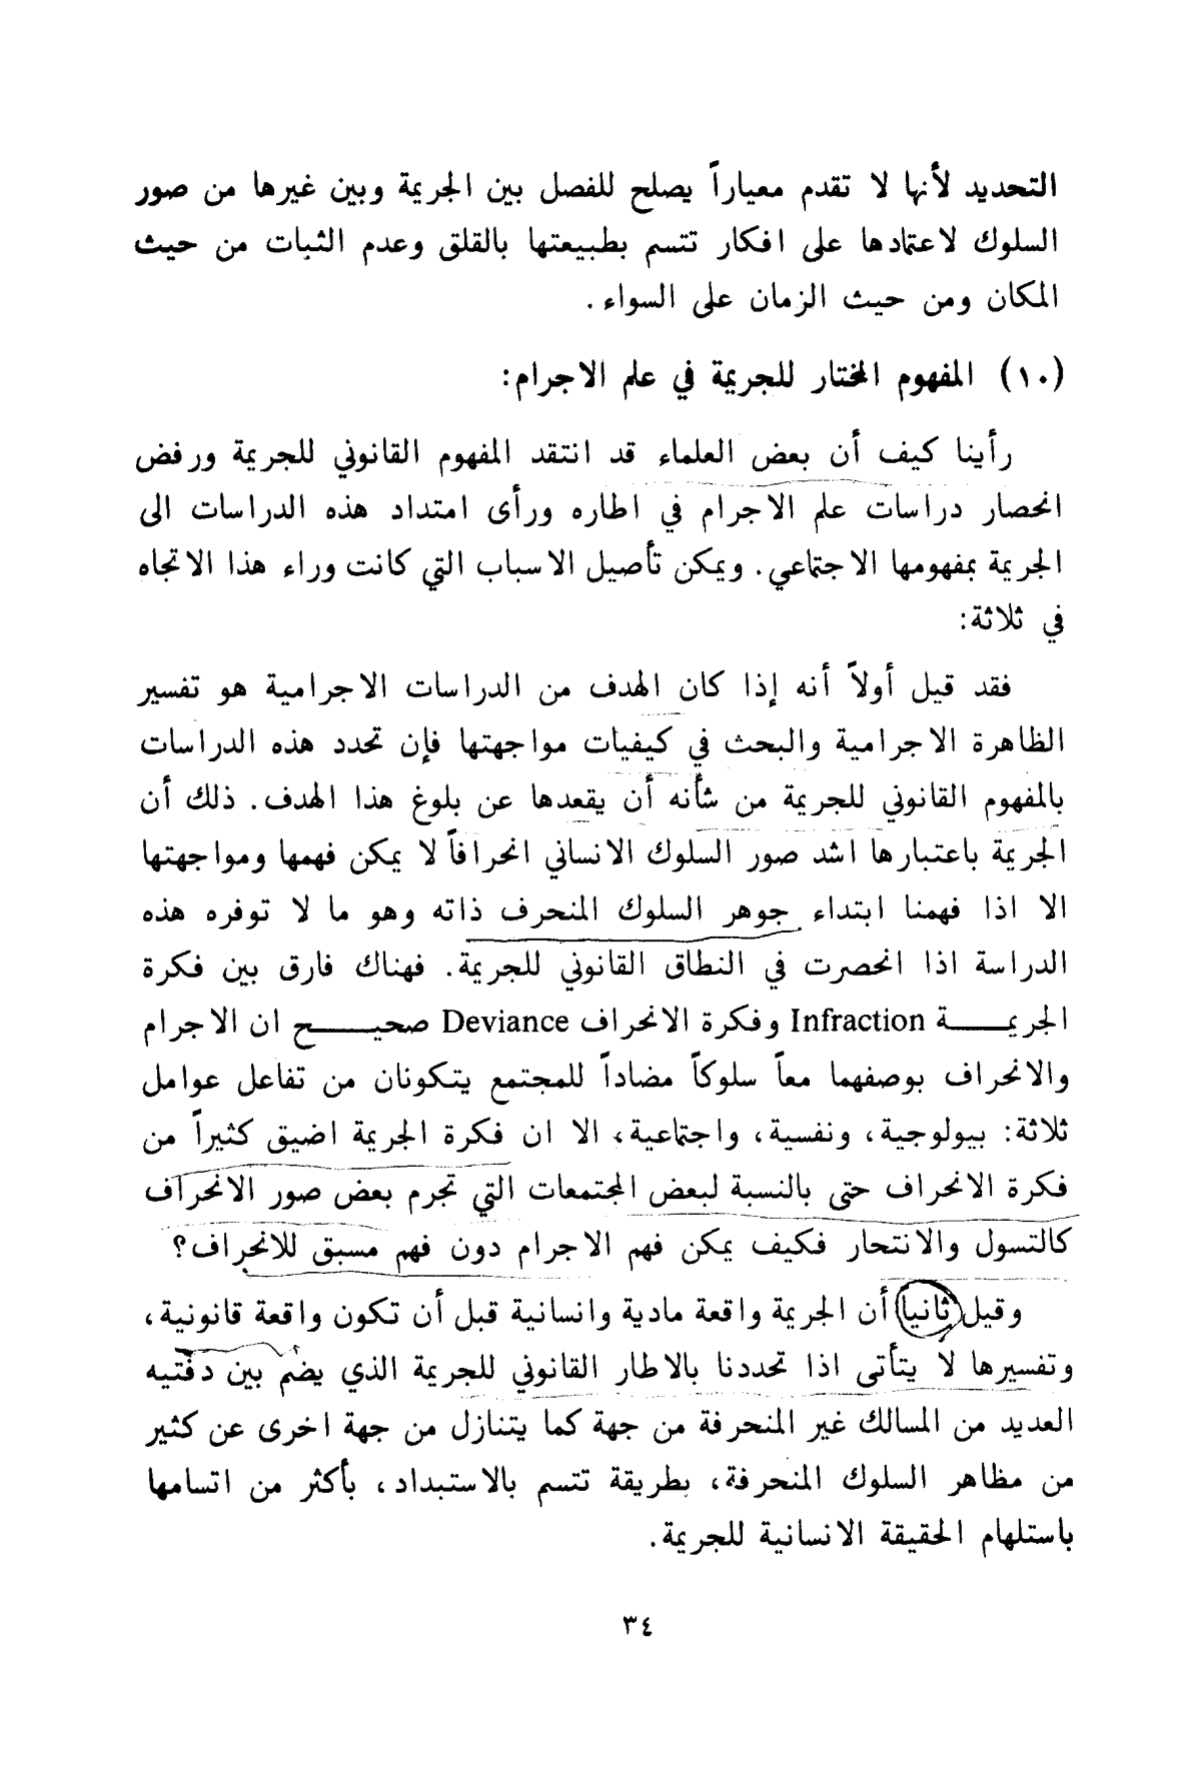 التحديد لأنها لا تقدم معياراً يصلح للفصل بين الجريمة وبين غيرها من صور
السلوك لاعتمادها على افكار تتسم بطبيعتها بالقلق وعدم الثبات من حيث
المكان ومن حيث الزمان على السواء.
(١٠) المفهوم المختار للجريمة في علم الاجرام:
رأينا كيف أن بعض العلماء قد انتقد المفهوم القانوني للجريمة ورفض
انحصار دراسات علم الاجرام في اطاره ورأى امتداد هذه الدراسات الى
الجريمة بمفهومها الاجتماعي. ويمكن تأصيل الاسباب التي كانت وراء هذا الاتجاه
في ثلاثة:
فقد قيل أولاً أنه إذا كان الهدف من الدراسات الاجرامية هو تفسير
الظاهرة الاجرامية والبحث في كيفيات مواجهتها فإن تحدد هذه الدراسات
بالمفهوم القانوني للجريمة من شأنه أن يقعدها عن بلوغ هذا الهدف. ذلك أن
الجريمة باعتبارها اشد صور السلوك الانساني انحرافاً لا يمكن فهمها ومواجهتها
الا اذا فهمنا ابتداء جوهر السلوك المنحرف ذاته وهو ما لا توفره هذه
الدراسة اذا انحصرت في النطاق القانوني للجريمة. فهناك فارق بين فكرة
الجريمـــة Infraction وفكرة الانحراف Deviance صحيـــح ان الاجرام
والانحراف بوصفهما معاً سلوكاً مضاداً للمجتمع يتكونان من تفاعل عوامل
ثلاثة: بيولوجية، ونفسية، واجتماعية، الا ان فكرة الجريمة اضيق كثيراً من
فكرة الانحراف حتى بالنسبة لبعض المجتمعات التي تجرم بعض صور الانحراف
كالتسول والانتحار فكيف يمكن فهم الاجرام دون فهم مسبق للانحراف؟
وقيل ثانياً أن الجريمة واقعة مادية وانسانية قبل أن تكون واقعة قانونية،
وتفسيرها لا يتأتى اذا تحددنا بالاطار القانوني للجريمة الذي يضم بين دفتيه
العديد من المسالك غير المنحرفة من جهة كما يتنازل من جهة اخرى عن كثير
من مظاهر السلوك المنحرفة، بطريقة تتسم بالاستبداد، بأكثر من اتسامها
باستلهام الحقيقة الانسانية للجريمة.
٣٤